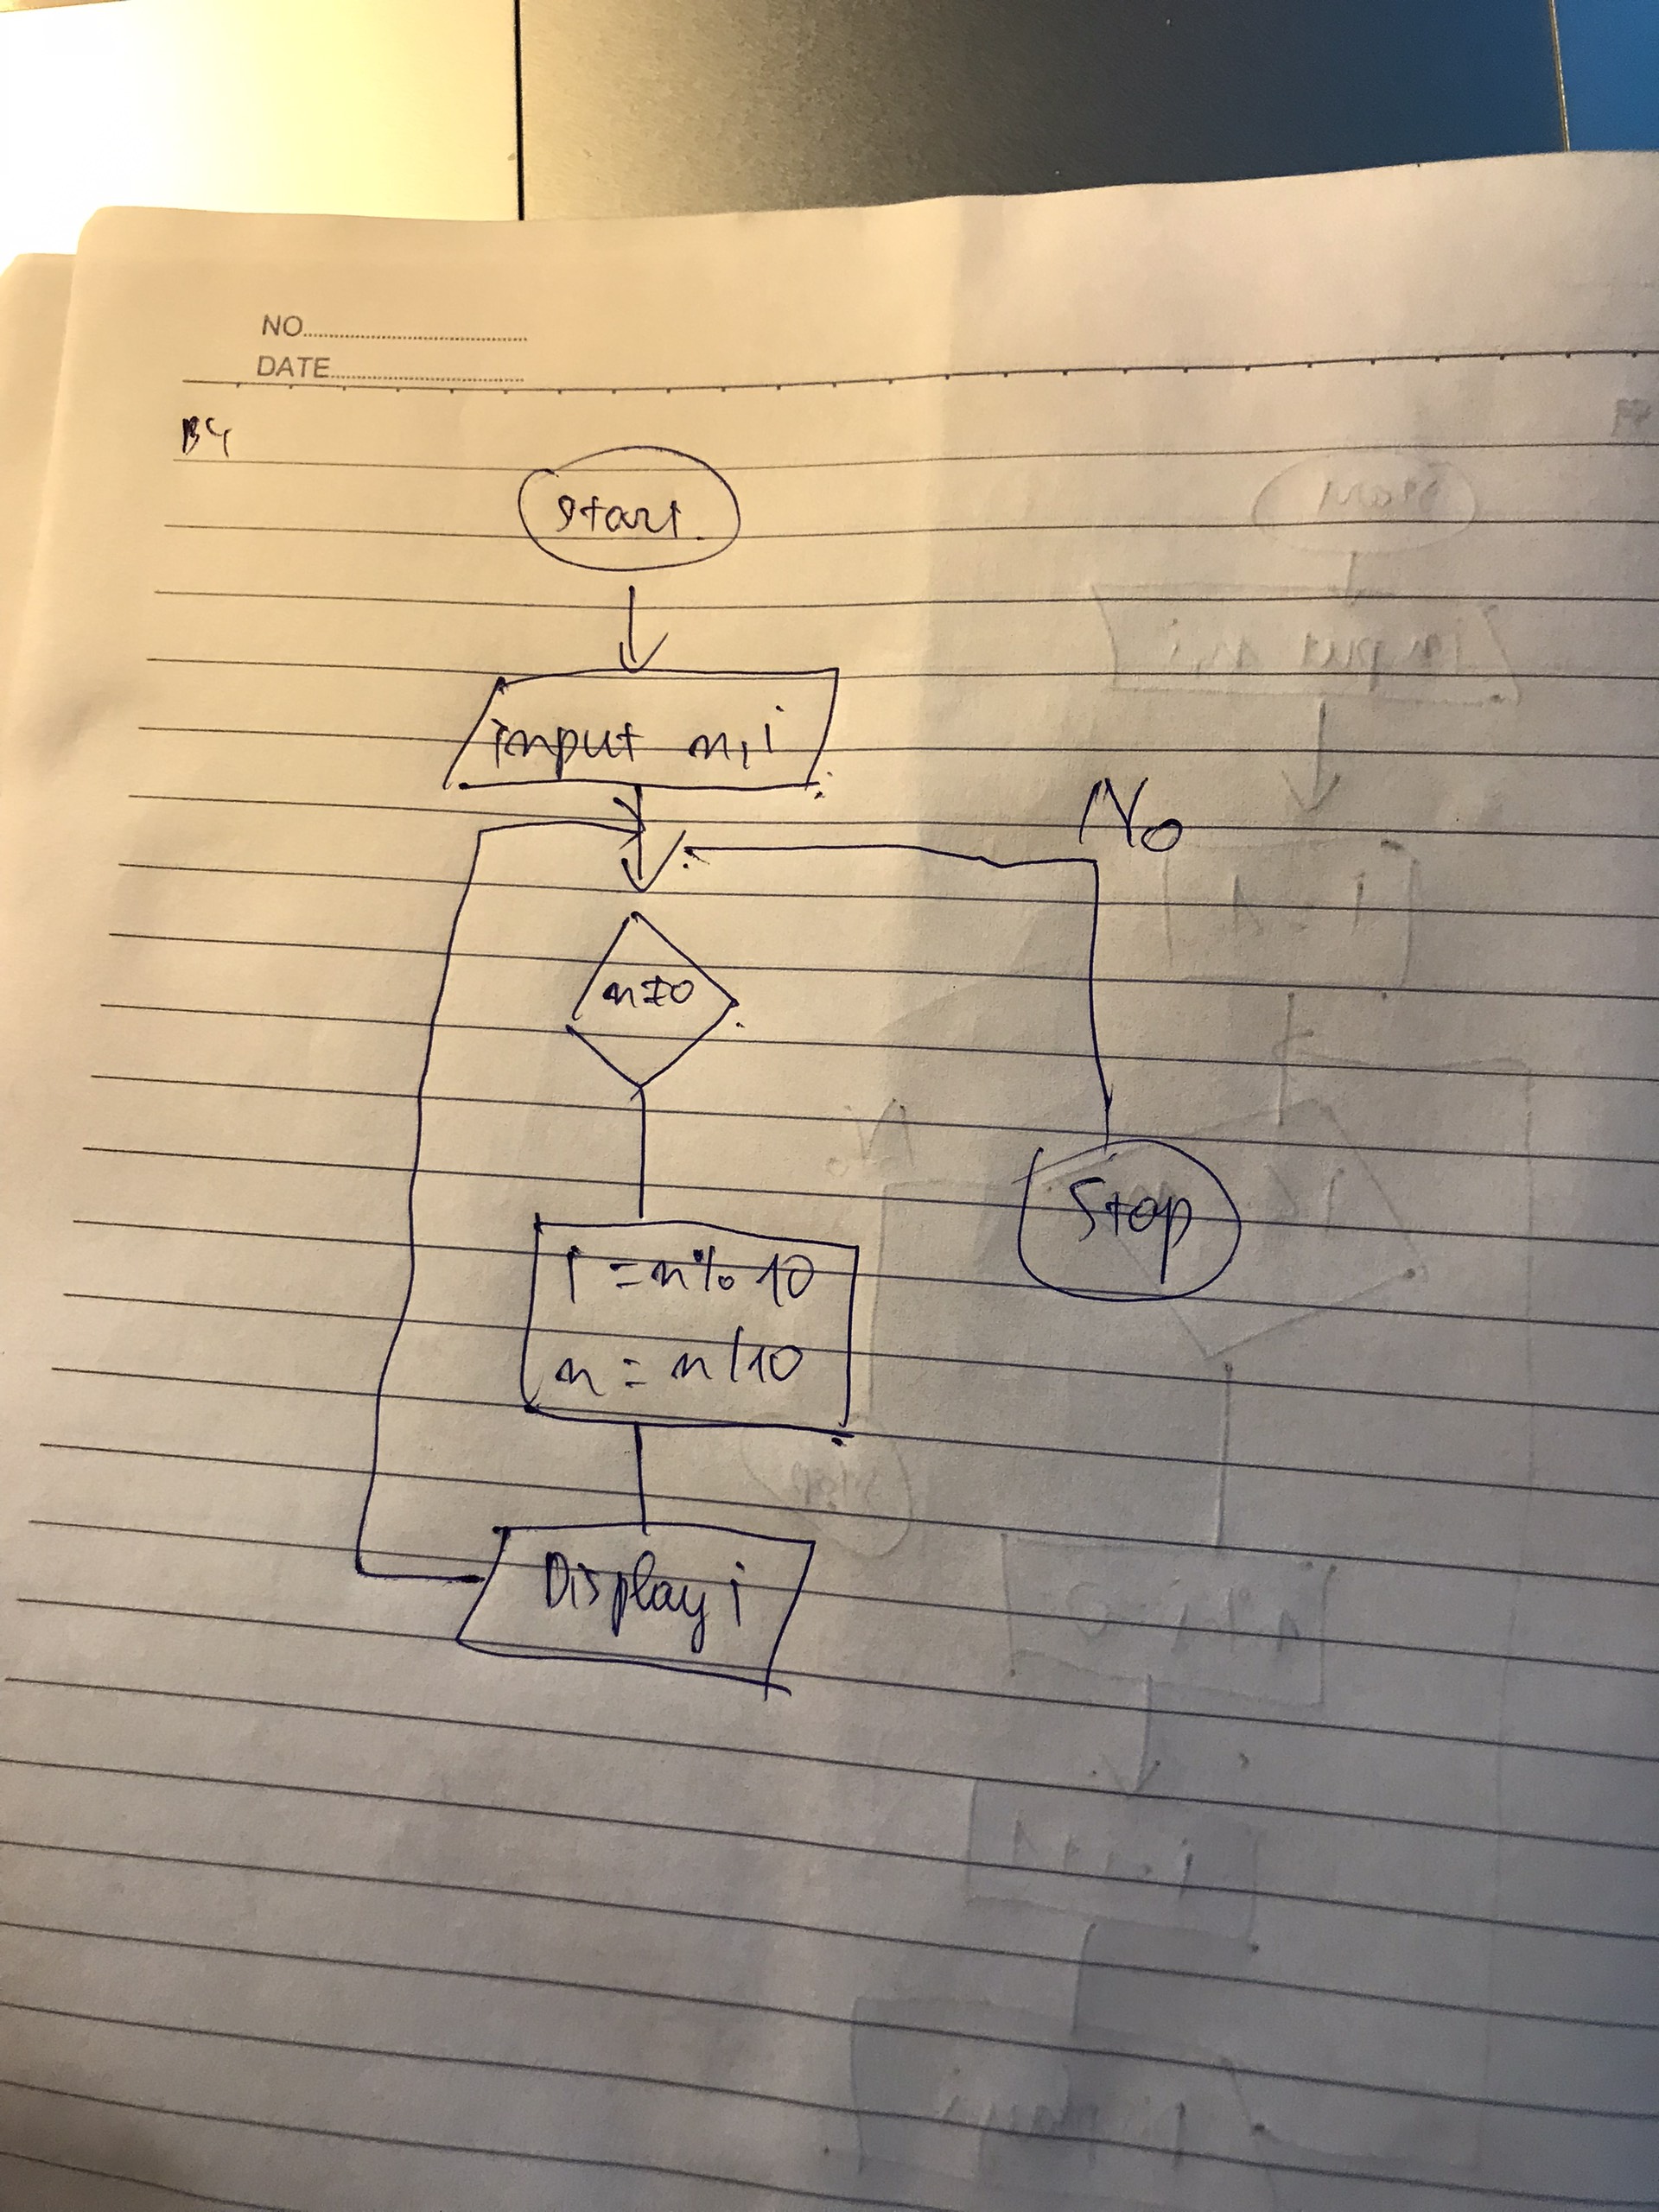 NO
DATE
B4
Start
input n, i
No
n≠0
Stop
i = n % 10
n = n/10
Display i